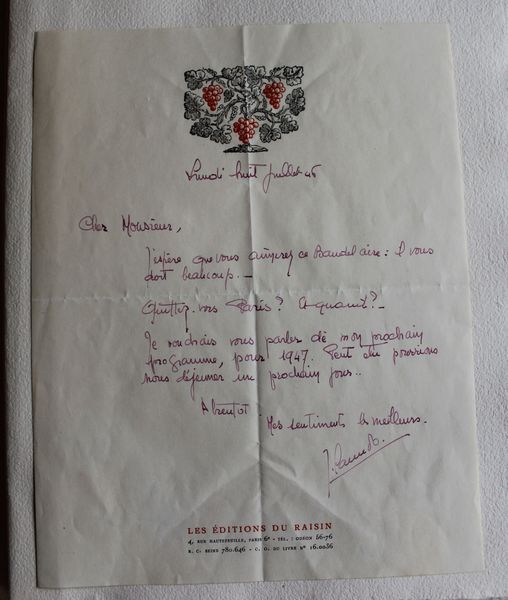 Lundi huit juillet 46
Cher Monsieur,
J'espère que vous aimerez ce Baudelaire : il vous
doit beaucoup. _
Quittez-vous Paris ? Et quand ? _
Je voudrais vous parler de mon prochain
programme, pour 1947. Peut être pourrions
nous déjeuner un prochain jour..
A bientôt.
Mes sentiments les meilleurs.
LES ÉDITIONS DU RAISIN
4, RUE HAUTEFEUILLE, PARIS 6e - TÉL. : ODÉON 56-76
R. C. SEINE 780.646 - C. O. DU LIVRE N° 16.0056